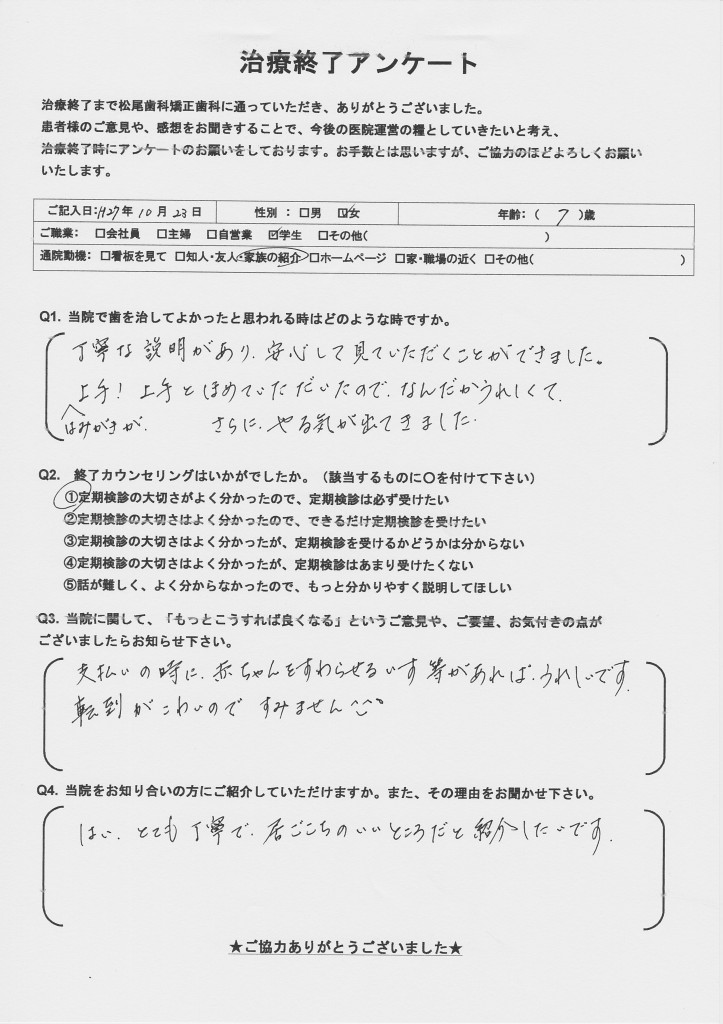 治療終了アンケート
治療終了まで松尾歯科矯正歯科に通っていただき、ありがとうございました。
患者様のご意見や、感想をお聞きすることで、今後の医院運営の糧としていきたいと考え、
治療終了時にアンケートのお願いをしております。お手数とは思いますが、ご協力のほどよろしくお願い
いたします。
ご記入日:H27年 10 月 23 日 性別 : □男 ☑女 年齢:( 7 )歳
ご職業: □会社員 □主婦 □自営業 ☑学生 □その他( )
通院動機: □看板を見て □知人・友人・家族の紹介 □ホームページ □家・職場の近く □その他( )
Q1. 当院で歯を治してよかったと思われる時はどのような時ですか。
丁寧な説明があり、安心して見ていただくことができました。
上手!上手とほめていただいたので、なんだかうれしくて、
はみがきが、 さらに、やる気が出てきました。
Q2. 終了カウンセリングはいかがでしたか。(該当するものに○を付けて下さい)
①定期検診の大切さがよく分かったので、定期検診は必ず受けたい
②定期検診の大切さはよく分かったので、できるだけ定期検診を受けたい
③定期検診の大切さはよく分かったが、定期検診を受けるかどうかは分からない
④定期検診の大切さはよく分かったが、定期検診はあまり受けたくない
⑤話が難しく、よく分からなかったので、もっと分かりやすく説明してほしい
Q3. 当院に関して、「もっとこうすれば良くなる」というご意見や、ご要望、お気付きの点が
ございましたらお知らせ下さい。
支払いの時に、赤ちゃんをすわらせるいす等があれば、うれしいです。
転到がこわいので すみません^^。
Q4. 当院をお知り合いの方にご紹介していただけますか。また、その理由をお聞かせ下さい。
はい、とても丁寧で、居ごこちのいいところだと紹介したいです。
★ご協力ありがとうございました★